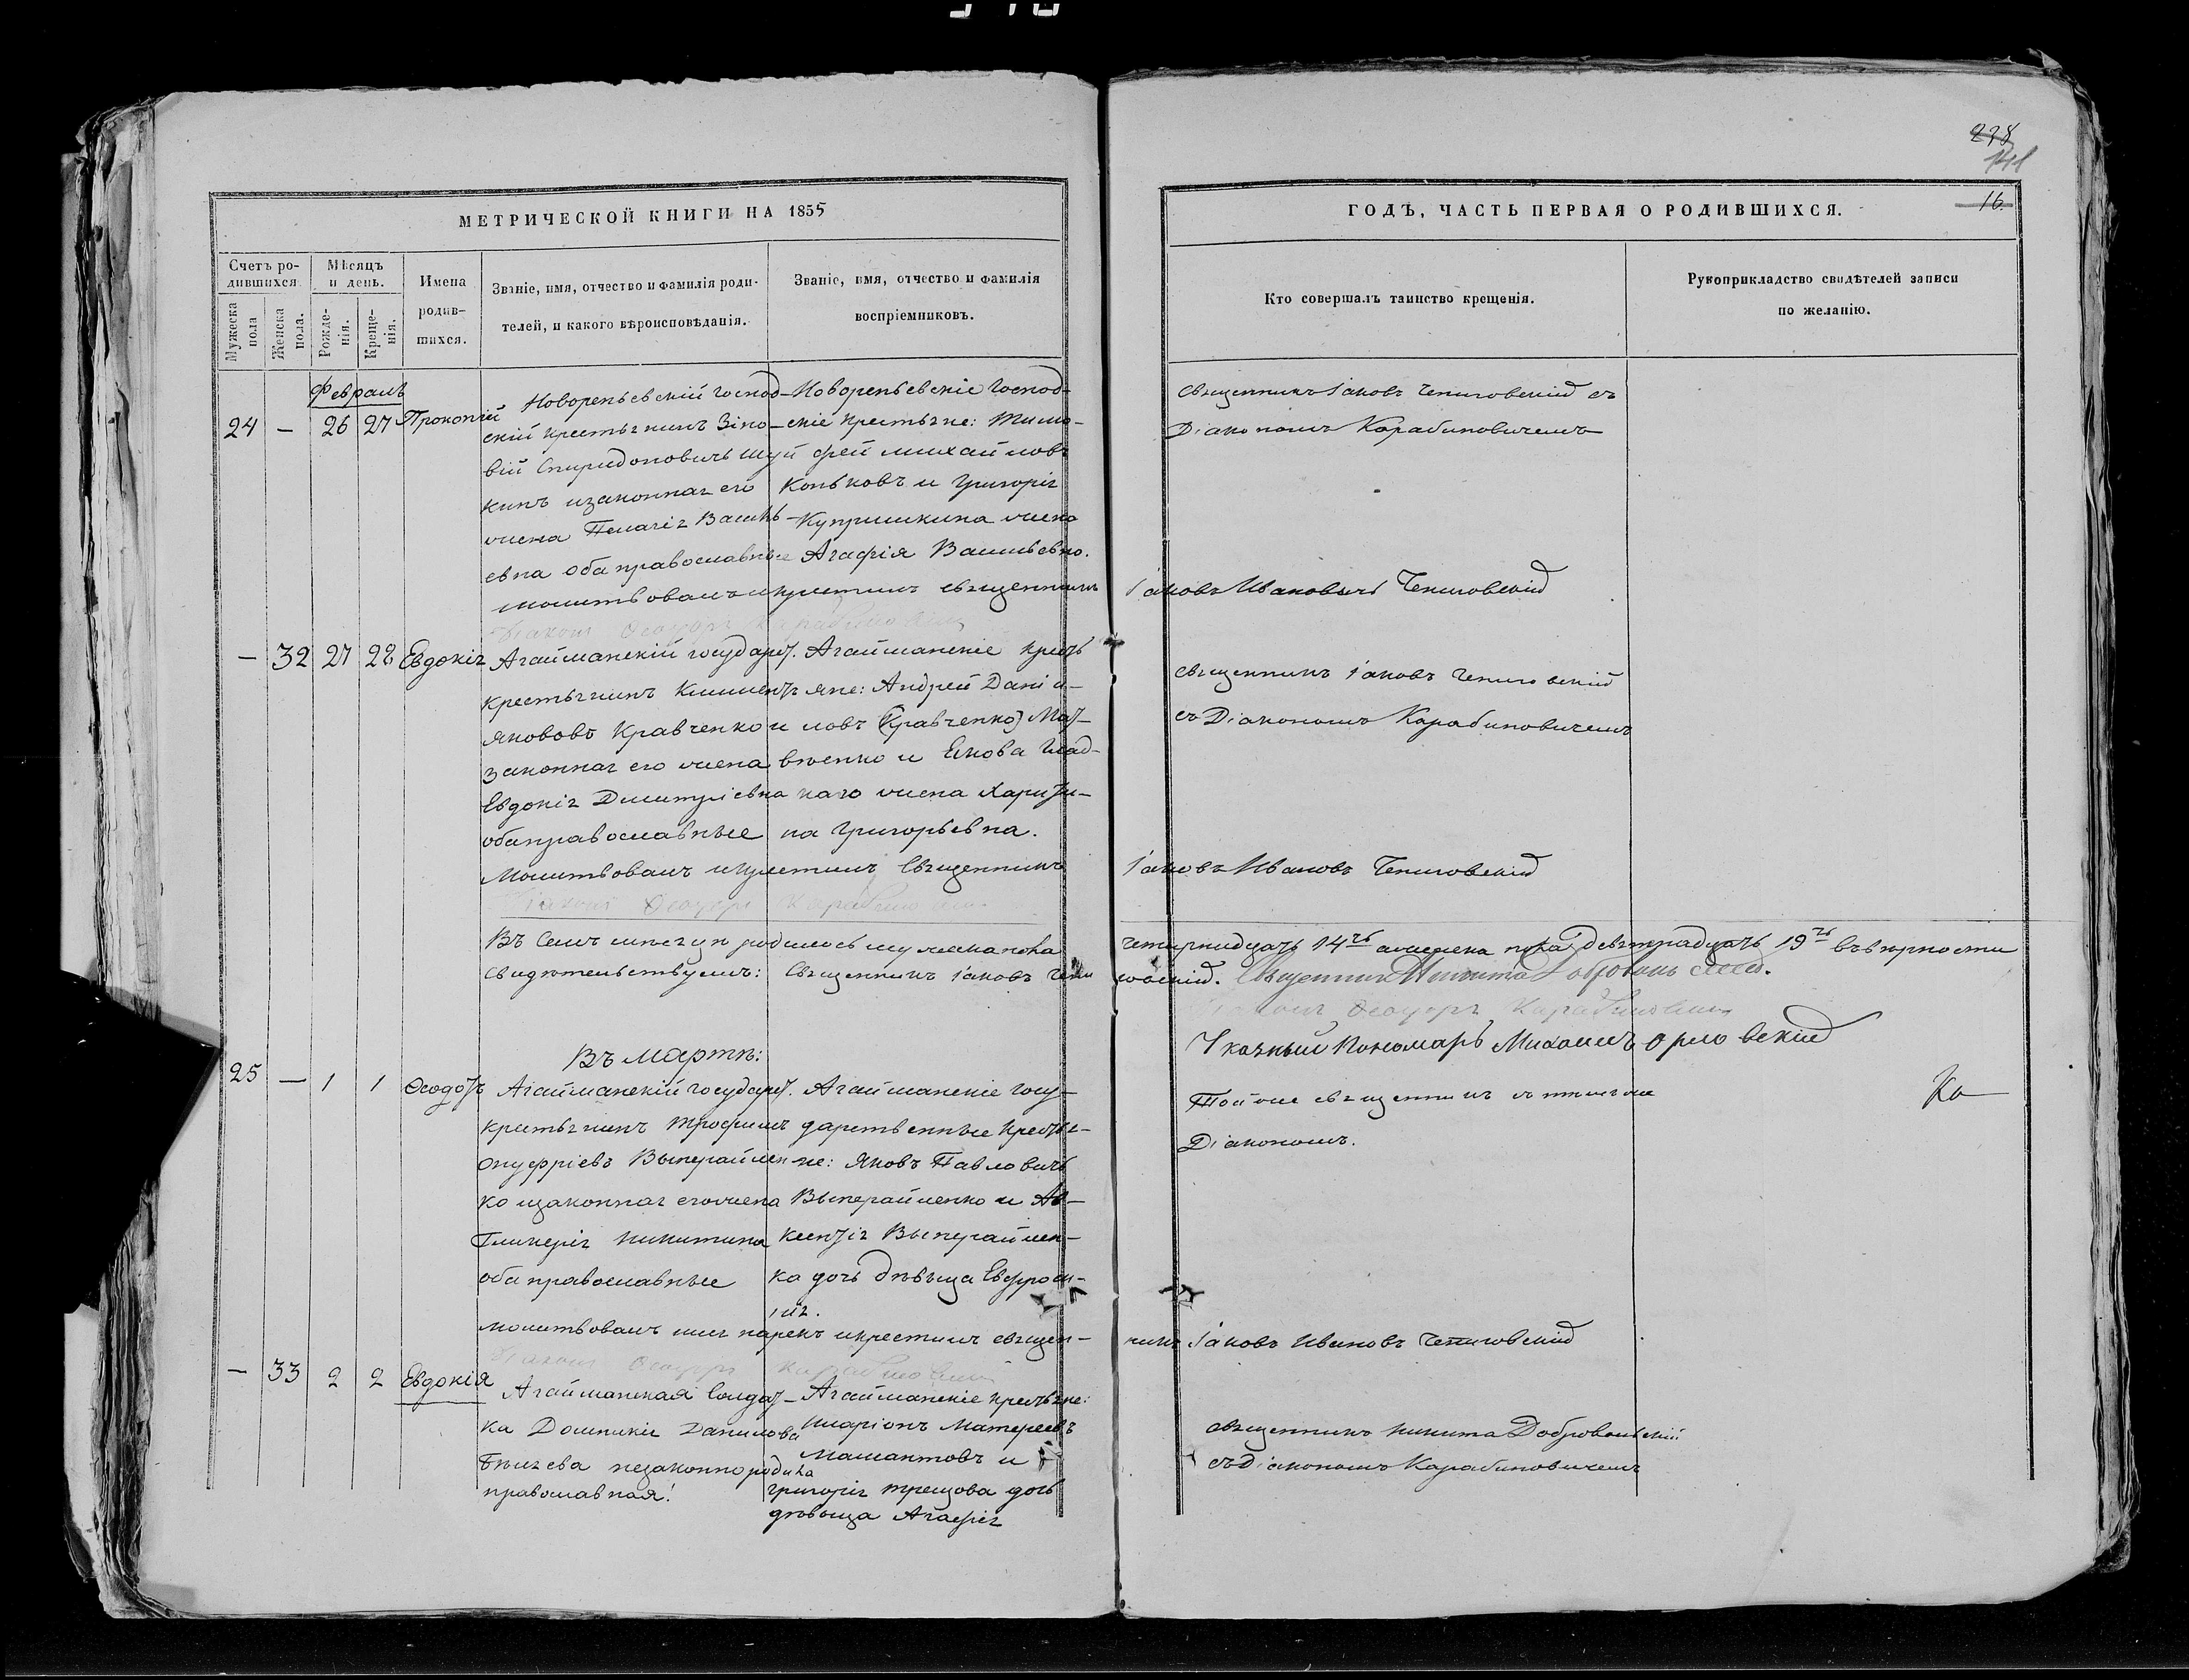 278
141
16.
МЕТРИЧЕСКОЙ КНИГИ НА 1855
ГОДЪ, ЧАСТЬ ПЕРВАЯ О РОДИВШИХСЯ.
Счетъ ро-
дившихся
Мужеска пола
Женска пола.
Мѣсяцъ
и день.
Рожде-
нія.
Креще-
нія.
Имена
родив-
шихся.
Званіе, имя, отчество и фамилія роди-
телей, и какого вѣроисповѣданія.
Званіе, имя, отчество и фамилія
воспріемниковъ.
Кто совершалъ таинство крещенія.
Рукоприкладство свидѣтелей записи
по желанію.
Февраль
24 — 26 27 Прокопій
Новорепьевскій господ-
скій крестьянинъ Зіно-
вій Спиридоновичъ Шуй
кинъ и законная его
жена Пелагія Василь-
евна оба православные
Новорепьевскіе господ-
скіе крестьяне: Тимо-
фей Михайловъ
Коньковъ и Григорія
Купришкина жена
Агафія Васильевна.
Священникъ Іаковъ Чепиговскій съ
Діакономъ Карабиновичемъ
Молитвовалъ и крестилъ священникъ Іаковъ Ивановичъ Чепиговскій
Діаконъ Ѳеодоръ Карабиновичъ
— 32 27 28 Евдокія
Агайманскій государст.
крестьянинъ Климентъ
Якововъ Кравченко и
законная его жена
Евдокія Димитріевна
оба православные
Агайманскіе кресть
яне: Андрей Даніи-
ловъ (Кравченко) Мат-
вѣенко и Якова Глад-
каго жена Харити-
на Григорьевна.
Священникъ Іаковъ Чепиговскій
съ Діакономъ Карабиновичемъ
Молитвовалъ и крестилъ Священникъ Іаковъ Ивановъ Чепиговскій
Діаконъ Ѳеодоръ Карабиновичъ
Въ семъ мѣсяцѣ родилось мужеска пола четырнадцать 14ть а женска пола девятнадцать 19ть въ вѣрности
свидѣтельствуемъ: Священникъ Іаковъ Чепи говскій. Священникъ Никита Добровольскій.
Діаконъ Ѳеодоръ Карабиновичъ
Указный Пономарь Михаилъ Орловскій
Въ Мартѣ:
25 — 1 1 Ѳеодотъ
Агайманскій государст.
крестьянинъ Трофимъ
Онуфріевъ Выперайлен
ко и законная его жена
Гликерія Никитина
оба православные
Агайманскіе госу-
дарственные кресть-
яне: Яковъ Павловичъ
Выперайленко и Ав-
ксентія Выперайлен-
ка дочь дѣвица Евфроси-
нія.
Тойже священникъ съ тѣмъ же
Діакономъ.
Ко
Молитвовалъ имя нарекъ и крестилъ священ- никъ Іаковъ Ивановъ Чепиговскій
Діаконъ Ѳеодоръ Карабиновичъ
— 33 2 2 Евдокія
Агайманская солдат-
ка Домникія Данилова
Бѣляева незаконнородила
православная!
Агайманскіе крестьяне:
Иларіонъ Матѳеевъ
Мамантовъ и
Григорія Трецова дочь
дѣвица Агафія
Священникъ Никита Добровольскій
съ Діакономъ Карабиновичемъ